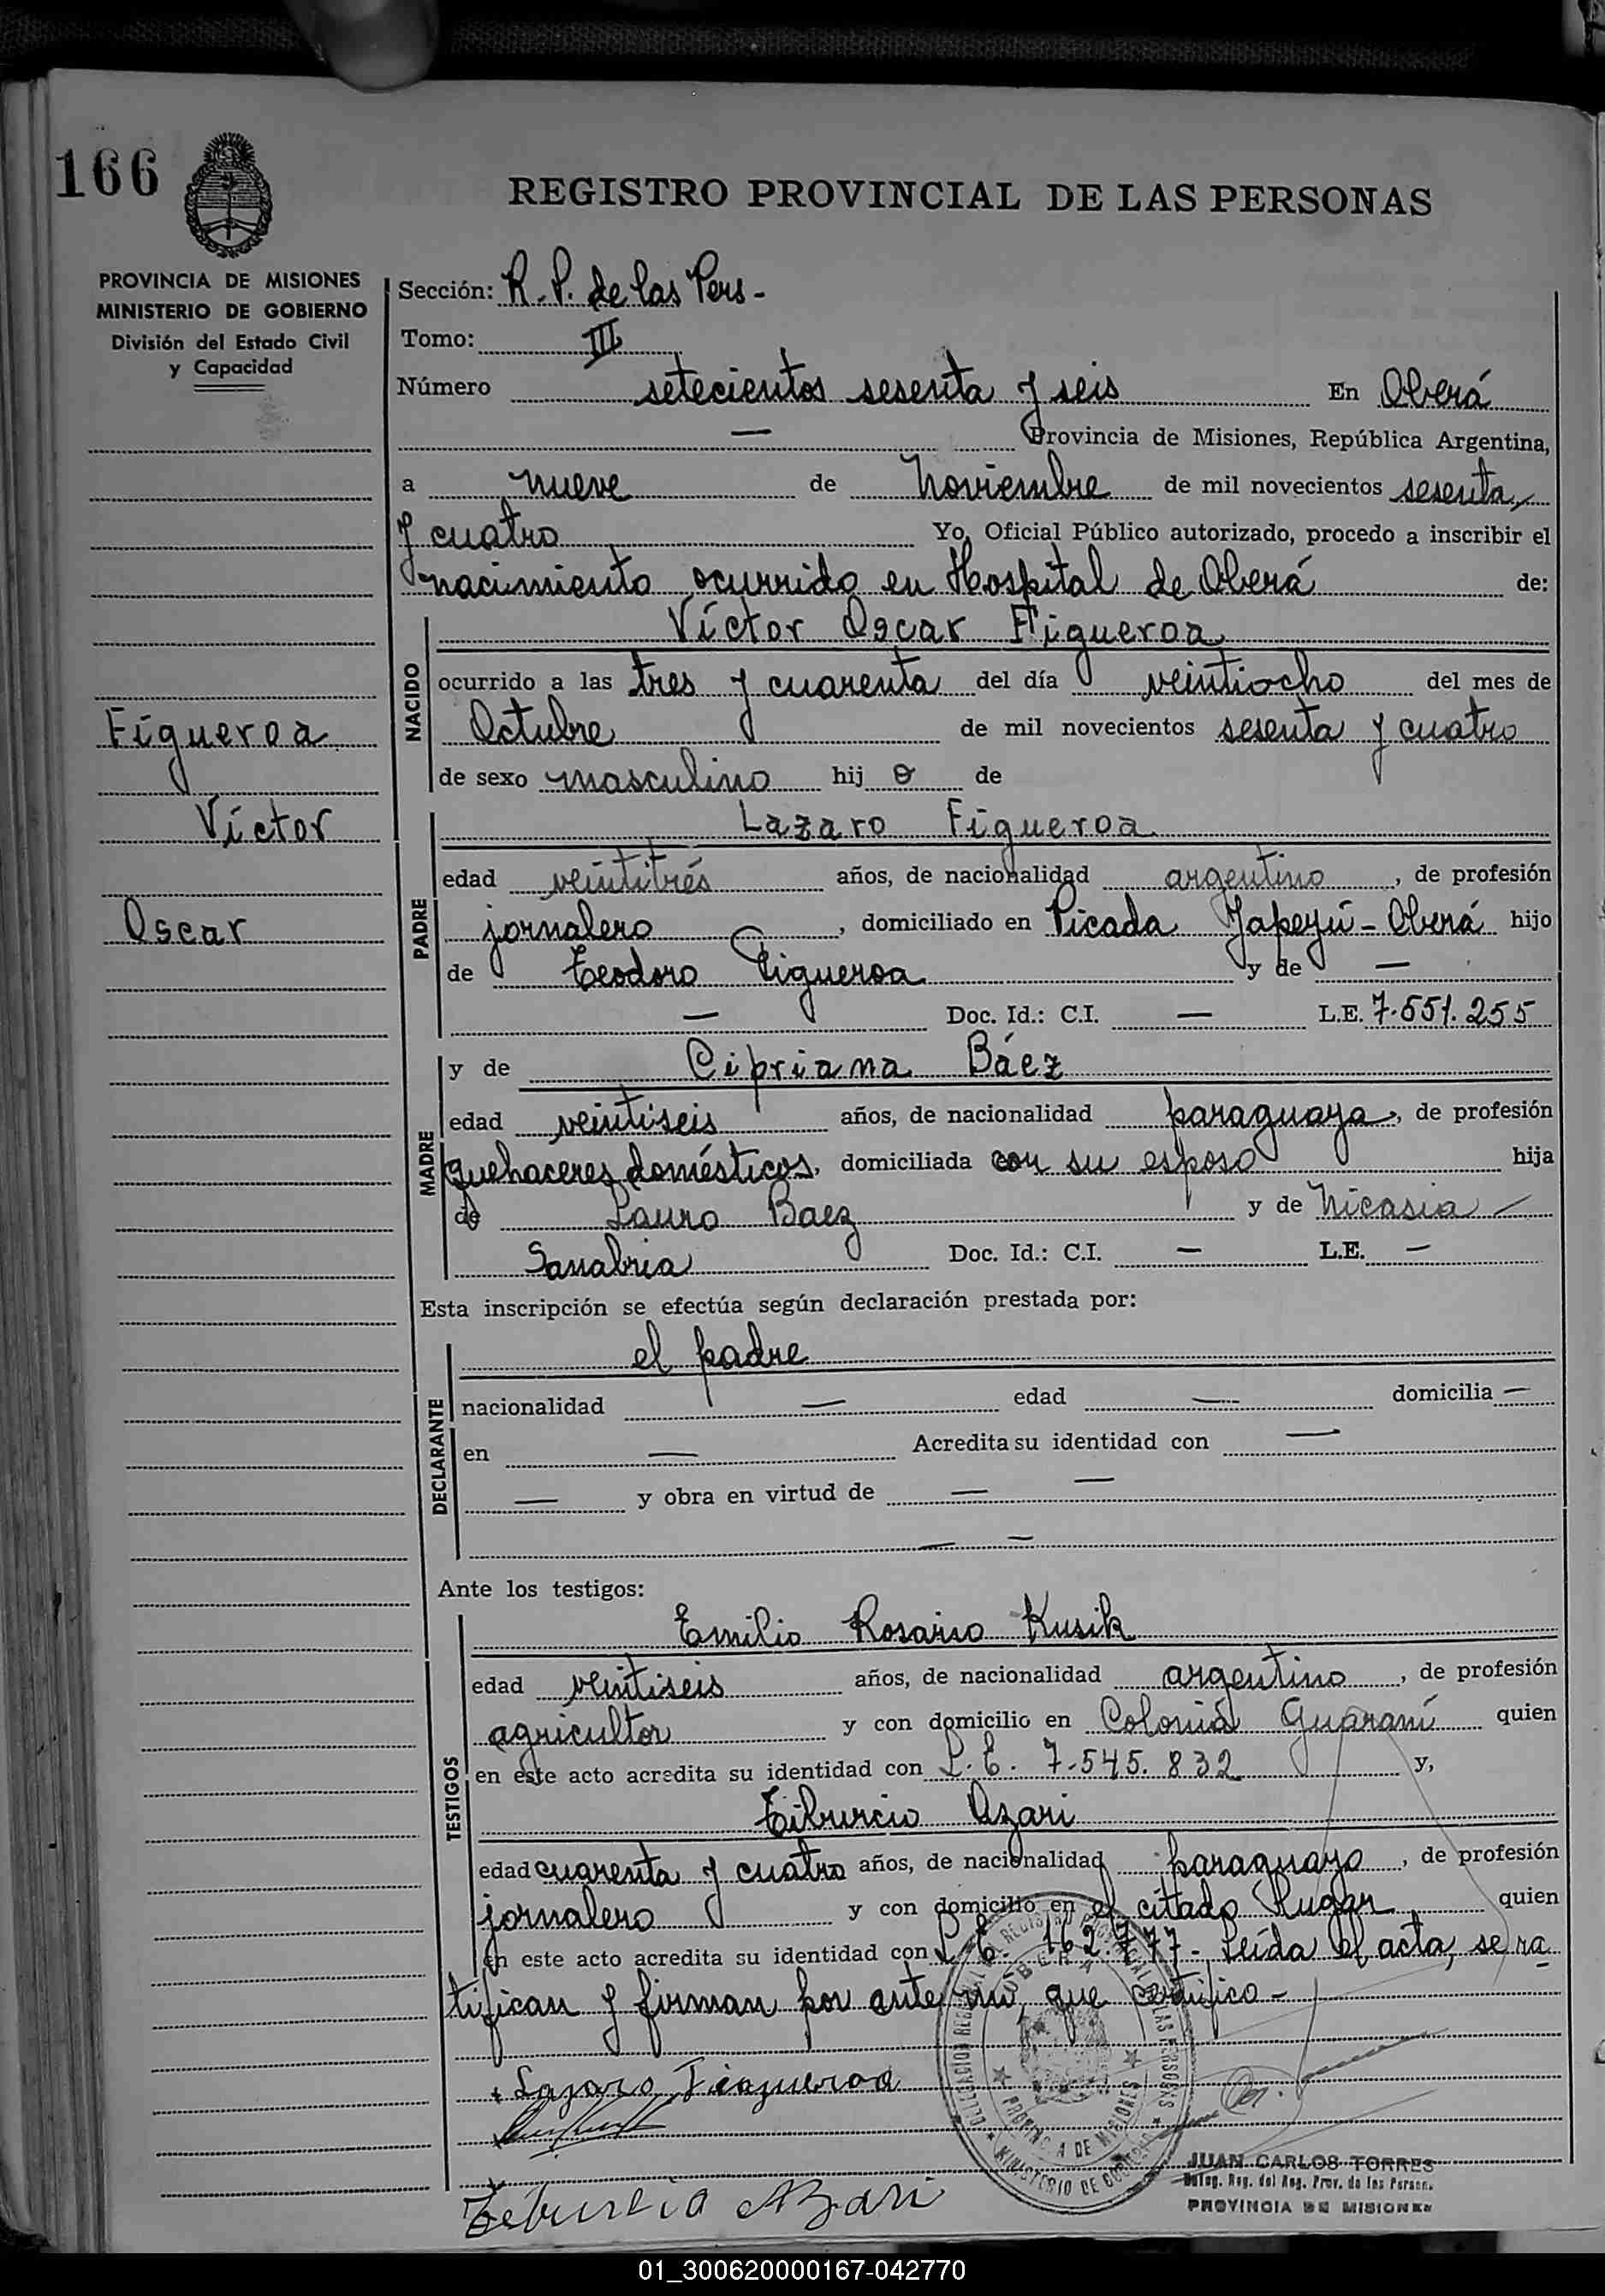 166
REGISTRO PROVINCIAL DE LAS PERSONAS
PROVINCIA DE MISIONES
MINISTERIO DE GOBIERNO
División del Estado Civil
y Capacidad
Figueroa
Víctor
Oscar
Sección: R. P. de las Pers -
Tomo: III
Número setecientos sesenta y seis En Oberá
— Provincia de Misiones, República Argentina,
a nueve de Noviembre de mil novecientos sesenta
y cuatro Yo, Oficial Público autorizado, procedo a inscribir el
nacimiento ocurrido en Hospital de Oberá de:
NACIDO
Víctor Oscar Figueroa
ocurrido a las tres y cuarenta del día veintiocho del mes de
Octubre de mil novecientos sesenta y cuatro
de sexo masculino hij o de
PADRE
Lazaro Figueroa
edad veintitrés años, de nacionalidad argentino, de profesión
jornalero, domiciliado en Picada Yapeyú - Oberá hijo
de Teodoro Figueroa y de —
— Doc. Id.: C.I. — L.E. 7.551.255
MADRE
y de Cipriana Báez
edad veintiseis años, de nacionalidad paraguaya, de profesión
quehaceres domésticos, domiciliada con su esposo hija
de Lauro Baez y de Nicasia —
Sanabria Doc. Id.: C.I. — L.E. —
Esta inscripción se efectúa según declaración prestada por:
DECLARANTE
el padre
nacionalidad — edad — domicilia —
en — Acredita su identidad con —
— y obra en virtud de — —
— —
Ante los testigos:
TESTIGOS
Emilio Rosario Kusik
edad veintiseis años, de nacionalidad argentino, de profesión
agricultor y con domicilio en Colonia Guaraní quien
en este acto acredita su identidad con L.E. 7.545.832 y,
Tiburcio Azari
edad cuarenta y cuatro años, de nacionalidad paraguayo, de profesión
jornalero y con domicilio en el citado lugar quien
en este acto acredita su identidad con 162.777 - Leída el acta, se ra
tifican y firman por ante mí, que certifico -
Lazaro Figueroa
Tiburcio Azari
OBERA
PROVINCIA DE MISIONES
MINISTERIO DE GOBIERNO
JUAN CARLOS TORRES
Deleg. Reg. del Reg. Prov. de las Person.
PROVINCIA DE MISIONES
01_300620000167-042770